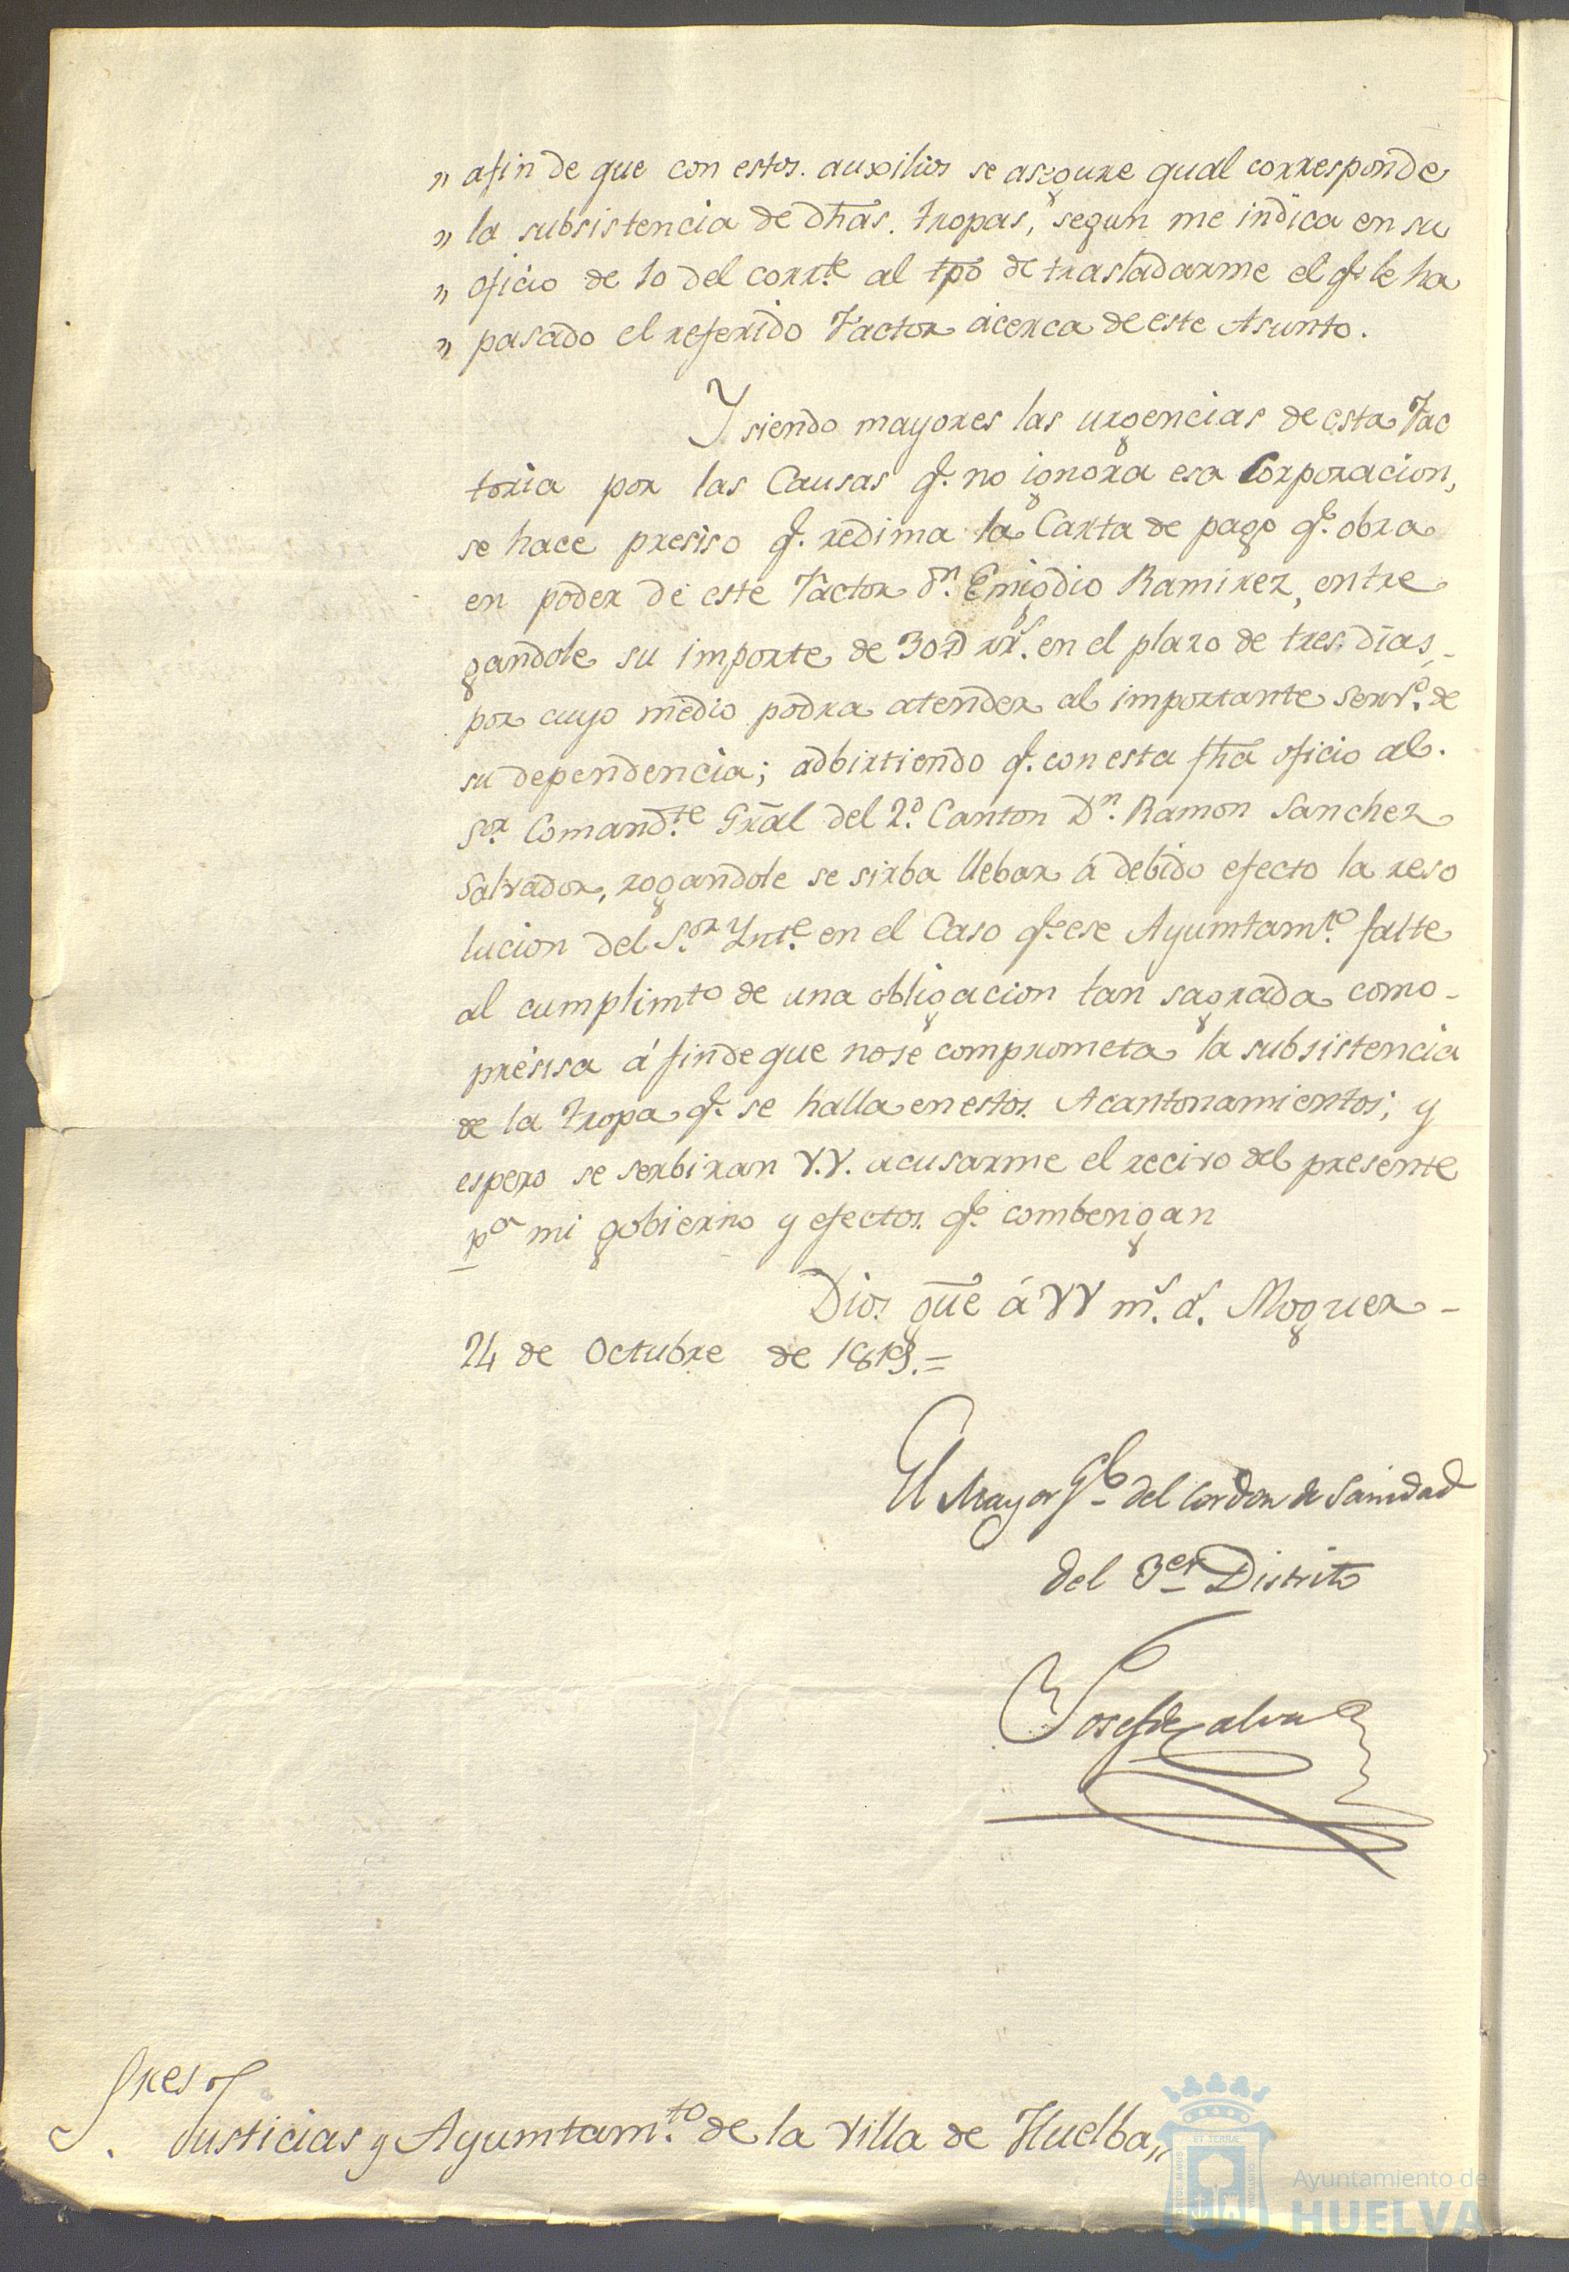 „ afin de que con estos auxilios se asegure qual corresponde
„ la subsistencia de dhãs. tropas, segun me indica en su
„ oficio de 10 del corrte. al tpõ de trasladarme el qe. le ha
„ pasado el referido Factor acerca de este Asunto.
Y siendo mayores las urgencias de esta Fac
toria por las Causas q. no ignora esa Corporacion,
se hace presiso q. redima la Carta de pago qe. obra
en poder de este Factor dn. Emigdio Ramirez, entre
gandole su importe de 30D rrs. en el plazo de tres dias,
por cuyo medio podra atender al importante servo. de
su dependencia; adbirtiendo q. con esta fhã oficio al
Sor. Comandte. Grãl del 2o. Canton Dn. Ramon Sanchez
Salvador, rogandole se sirba llebar á debido efecto la reso
lucion del Sor. Ynte. en el Caso qe. ese Ayuntamto. falte
al cumplimto de una obligacion tan sagrada como
presisa á fin de que no se comprometa la subsistencia
de la tropa qe. se halla en estos Acantonamientos; y
espero se serbiran V.V. acusarme el recivo del presente
pa mi gobierno y efectos qe. combengan
Dios güe á VV ms. as. Moguer
24 de Octubre de 1819.=
El Mayor Gl. del Cordon de Sanidad
del 3er Distrito
Josef de
Sres
Justicias y Ayuntamto. de la Villa de Huelba„
Ayuntamiento de
HUELVA